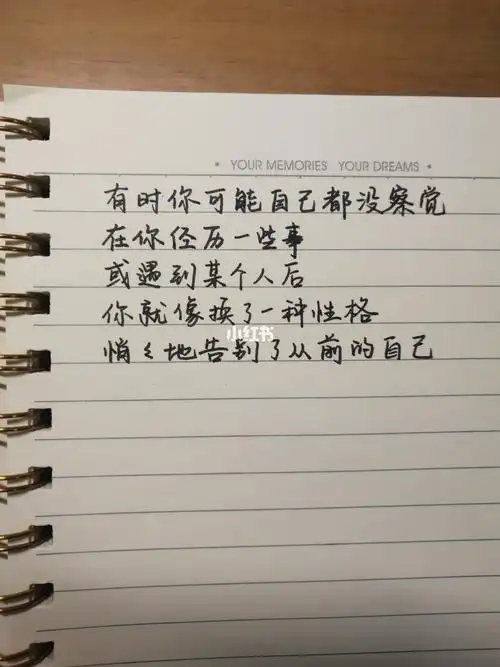 • YOUR MEMORIES YOUR DREAMS •
有时你可能自己都没察觉
在你经历一些事
或遇到某个人后
你就像换了一种性格
小红书
悄々地告别了从前的自己